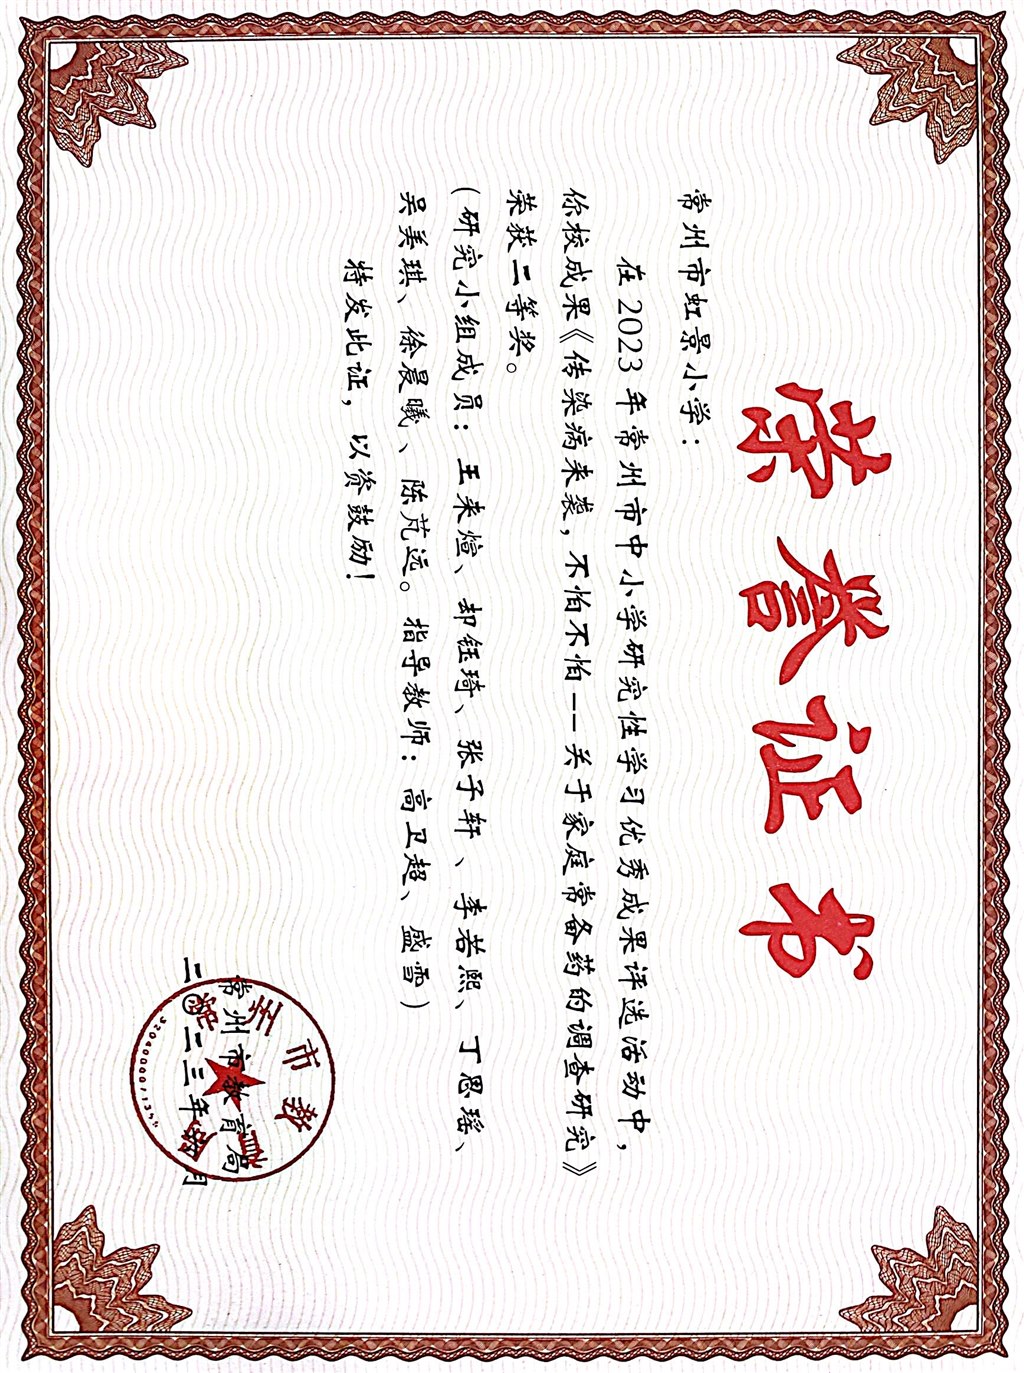 荣誉证书
常州市虹景小学：
在2023年常州市中小学研究性学习优秀成果评选活动中，
你校成果《传染病来袭，不怕不怕--关于家庭常备药的调查研究》
荣获二等奖。
(研究小组成员：王来煊、却钰琦、张子轩、李若熙、丁思瑶、
吴美琪、徐晨曦、陈芃远。指导教师：高卫超、盛雪)
特发此证，以资鼓励！
常州市教育局
二〇二三年 月
常州市教育局